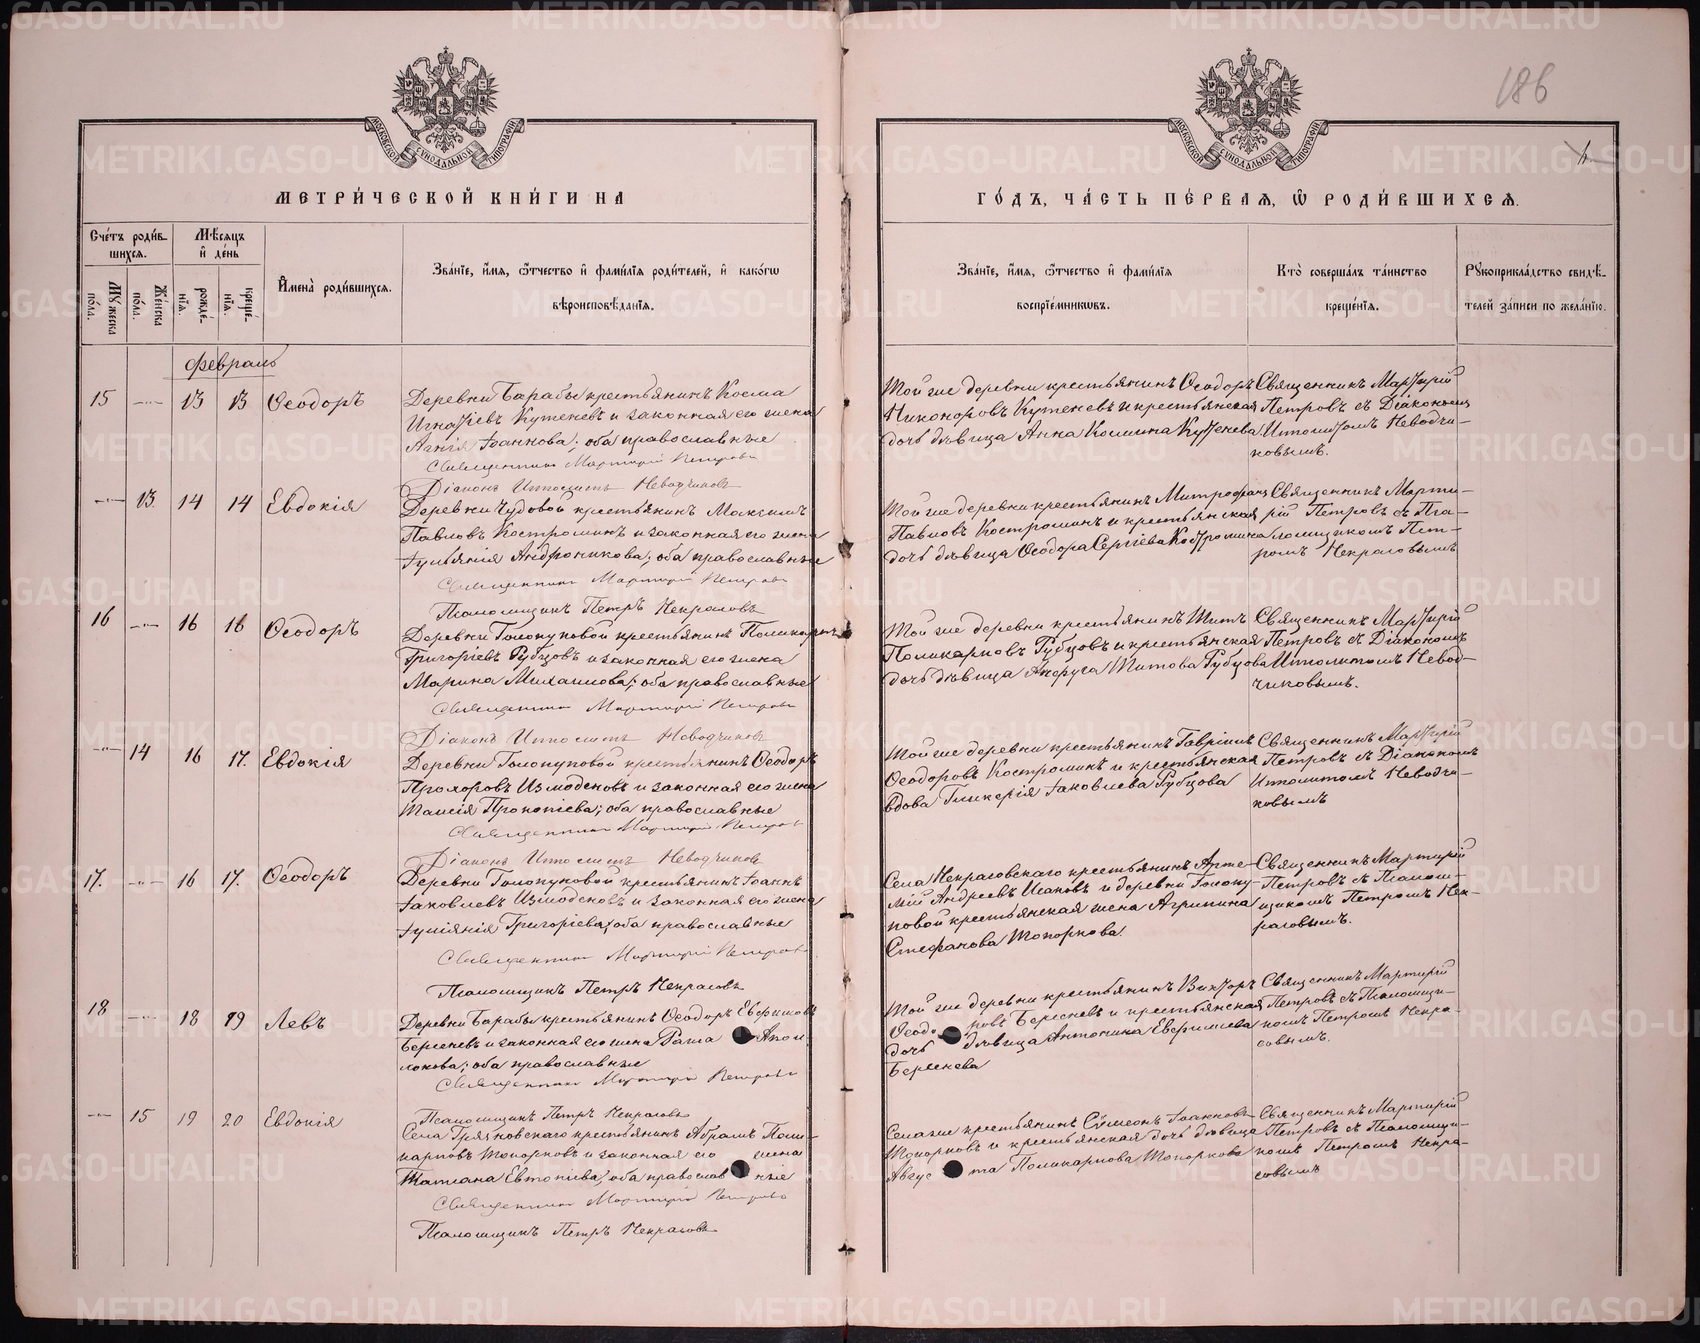 186
4
МОСКОВСКОЙ СѴНОДАЛЬНОЙ ТИПОГРАФІИ
МОСКОВСКОЙ СѴНОДАЛЬНОЙ ТИПОГРАФІИ
МЕТРИ́ЧЕСКОЙ КНИ́ГИ НА
ГО́ДЪ, ЧА́СТЬ ПЕ́РВАЯ, Ѿ РОДИ́ВШИХСЯ.
Сче́тъ роди́в-
шихся.
Мѣ́сяцъ
и де́нь
Му́жеска
по́ла.
Же́нска
по́ла.
рожде́-
нія.
креще́-
нія.
Имена̀ роди́вшихся.
Зва́ніе, и́мя, ѻ́тчество и фами́лія роди́телей, и како́гѡ
вѣроисповѣ́данія.
Зва́ніе, и́мя, ѻ́тчество и фами́лія
воспріе́мникѡвъ.
Кто̀ соверша́лъ та́инство
креще́нія.
Рꙋкоприкла́дство свидѣ́-
телей за́писи по жела́нію.
Февраль
15 –"– 13 13 Ѳеодоръ
Деревни Барабы крестьянинъ Косма
Игнатіевъ Кутеневъ и законная его жена
Агнія Іоаннова; оба православные
Священникъ Мартирій Петровъ
Діаконъ Ипполитъ Неводчиковъ
Той же деревни крестьянинъ Ѳеодоръ
Никоноровъ Кутеневъ и крестьянская
дочь дѣвица Анна Космина Кутенева
Священникъ Мартирій
Петровъ съ Діакономъ
Ипполитомъ Неводчи-
ковымъ.
–"– 13. 14 14 Евдокія
Деревни Чудовой крестьянинъ Максимъ
Павловъ Костроминъ и законная его жена
Іуліанія Андроникова; оба православные
Священникъ Мартирій Петровъ
Псаломщикъ Петръ Некрасовъ
Той же деревни крестьянинъ Митрофанъ
Павловъ Костроминъ и крестьянская
дочь дѣвица Ѳеодора Сергіева Костромина
Священникъ Марти-
рій Петровъ съ Пса-
ломщикомъ Пет-
ромъ Некрасовымъ
16 –"– 16 16 Ѳеодоръ
Деревни Голопуповой крестьянинъ Поликарпъ
Григоріевъ Рубцовъ и законная его жена
Марина Михаилова; оба православные
Священникъ Мартирій Петровъ
Діаконъ Ипполитъ Неводчиковъ
Той же деревни крестьянинъ Титъ
Поликарповъ Рубцовъ и крестьянская
дочь дѣвица Титова Рубцова
Священникъ Мартирій
Петровъ съ Діакономъ
Ипполитомъ Невод-
чиковымъ.
–"– 14 16 17. Евдокія
Деревни Голопуповой крестьянинъ Ѳеодоръ
Прохоровъ Измоденовъ и законная его жена
Таисія Прокопіева; оба православные
Священникъ Мартирій Петровъ
Діаконъ Ипполитъ Неводчиковъ
Той же деревни крестьянинъ Гавріилъ
Ѳеодоровъ Костроминъ и крестьянская
вдова Гликерія Іаковлева Рубцова
Священникъ Мартирій
Петровъ съ Діакономъ
Ипполитомъ Неводчи-
ковымъ
17. –"– 16 17. Ѳеодоръ
Деревни Голопуповой крестьянинъ Іоаннъ
Іаковлевъ Измоденовъ и законная его жена
Іуліанія Григоріева; оба православные
Священникъ Мартирій Петровъ
Псаломщикъ Петръ Некрасовъ
Села Некрасовскаго крестьянинъ Арте-
мій Андреевъ Исаковъ и деревни Голопу-
повой крестьянская жена Агрипина
Стефанова Топоркова.
Священникъ Мартирій
Петровъ съ Псалом-
щикомъ Петромъ Нек-
расовымъ.
18 –"– 18 19 Левъ
Деревни Барабы крестьянинъ Ѳеодоръ Евфимовъ
Бересневъ и законная его жена Раиса Апол-
лонова; оба православные
Священникъ Мартирій Петровъ
Псаломщикъ Петръ Некрасовъ
Той же деревни крестьянинъ Викторъ
Ѳеодо ровъ Бересневъ и крестьянская
дочь дѣвица Антонина Евфимиева
Береснева
Священникъ Мартирій
Петровъ съ Псаломщи-
комъ Петромъ Некра-
совымъ.
–"– 15 19 20 Евдокія
Села Грязновскаго крестьянинъ Абрамъ Поли-
карповъ Топорковъ и законная его жена
Татіана Евтропіева; оба православ ные
Священникъ Мартирій Петровъ
Псаломщикъ Петръ Некрасовъ
Села же крестьянинъ Сѵмеонъ Іоанновъ
Топорковъ и крестьянская дочь дѣвица
Авгус та Поликарпова Топоркова
Священникъ Мартирій
Петровъ съ Псаломщи-
комъ Петромъ Некра-
совымъ
METRIKI.GASO-URAL.RU